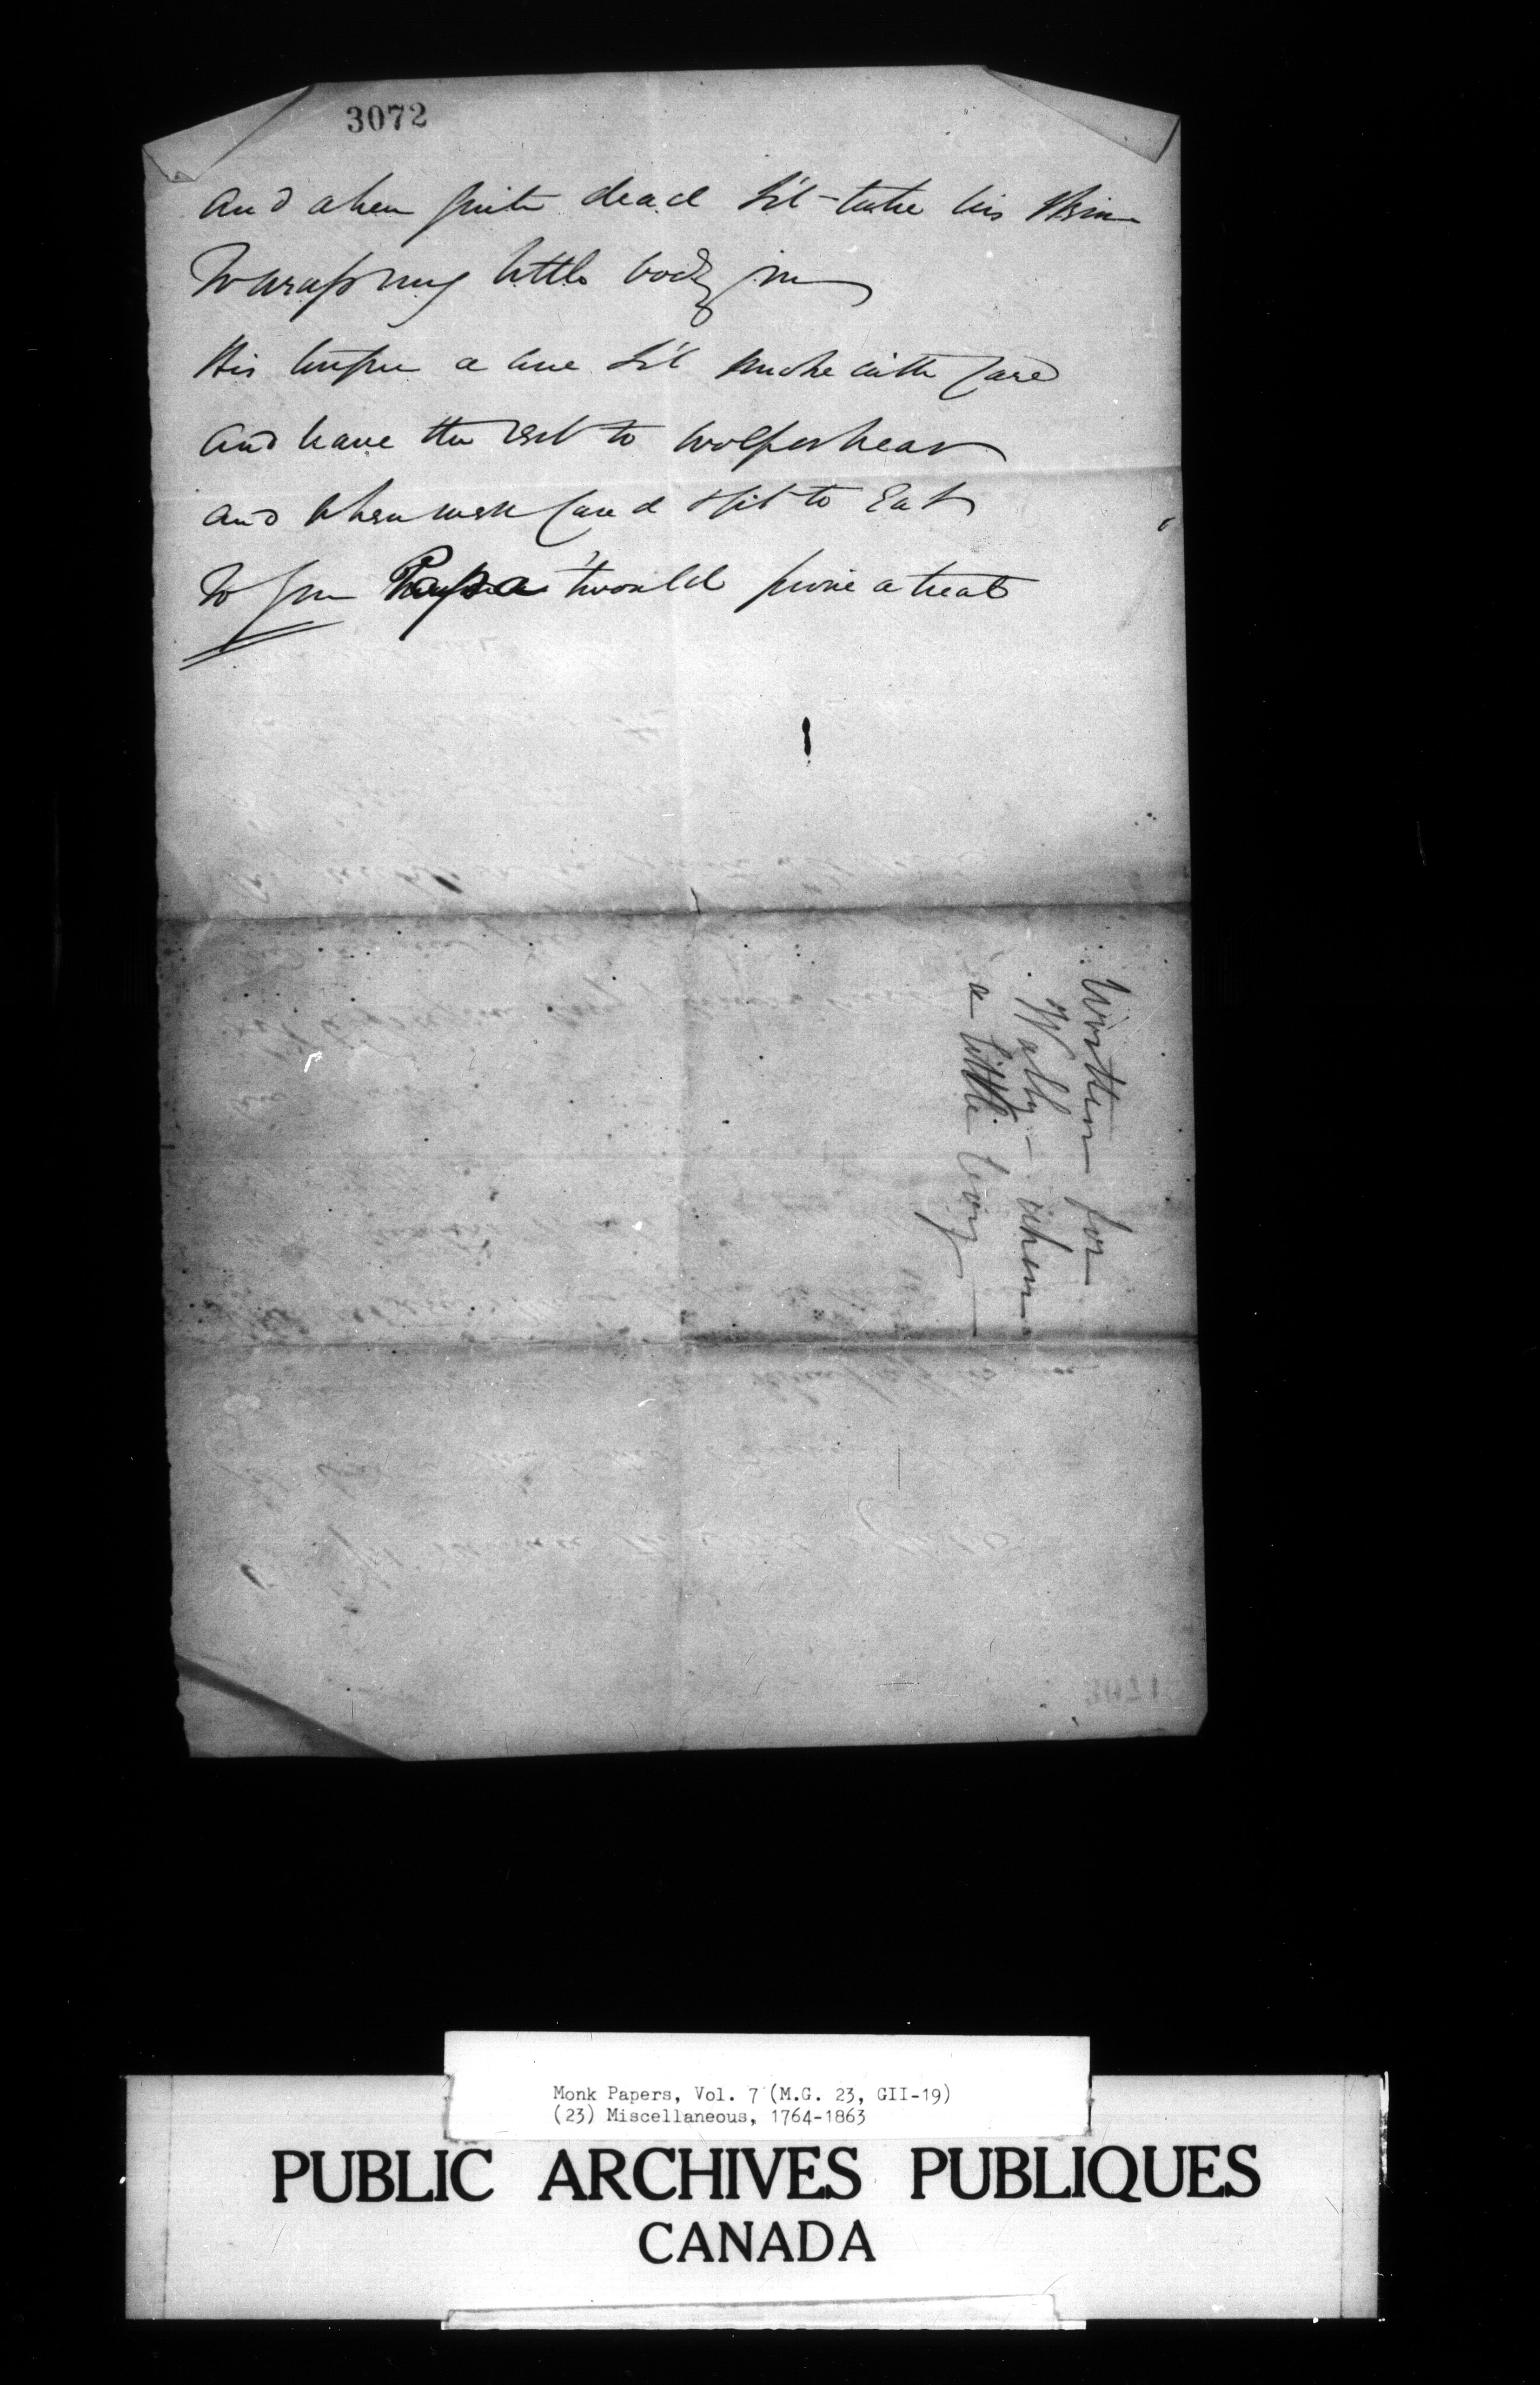 3072
And when quite dead I'd take his Skin
To wrap my little body in
His tongue a one I'd smoke with Care
And leave the rest to wolf or bear
And when well Cured & fit to Eat
To you Papa 'twould prove a treat
Written for
Wolly - when
a little boy
3071
Monk Papers, Vol. 7 (M.G. 23, GII-19)
(23) Miscellaneous, 1764-1863
PUBLIC ARCHIVES PUBLIQUES
CANADA